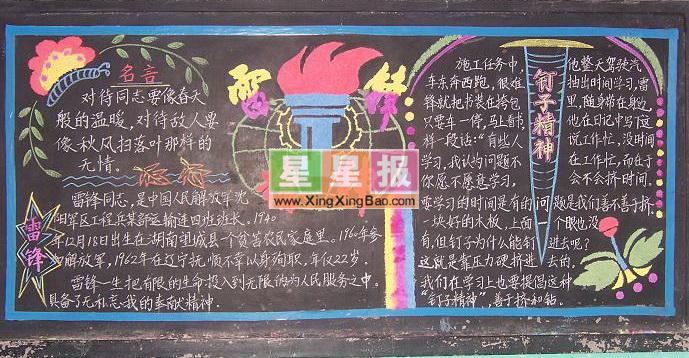 名言
对待同志要像春天
般的温暖,对待敌人要
像秋风扫落叶那样的
无情。
雷锋
雷锋同志,是中国人民解放军沈
阳军区工程兵某部运输连四班班长。1940
年12月18日出生在湖南望城县一个贫苦农民家庭里。1960年参
加解放军,1962年在辽宁抚顺不幸以身殉职,年仅22岁
雷锋一生把有限的生命投入到无限的为人民服务之中。
具备了无私忘我的奉献精神.
雷锋
星星报
www.XingXingBao.com
钉子精神
施工任务中,他整天驾驶汽
车东奔西跑,很难抽出时间学习,雷
锋就把书装在挎包里,随身带在身边,
只要车一停,马上看书,他在日记中写下这
样一段话:“有些人说工作忙,没时间
学习,我认为问题不在工作忙,而在于
你愿不愿意学习,会不会挤时间.
要学习的时间是有的问题是我们善不善于挤.
一块好的木板,上面一个眼也没
有,但钉子为什么能钉进去呢?
这就是靠压力硬挤进去的,
我们在学习上也要提倡这种
“钉子精神”,善于挤和钻.